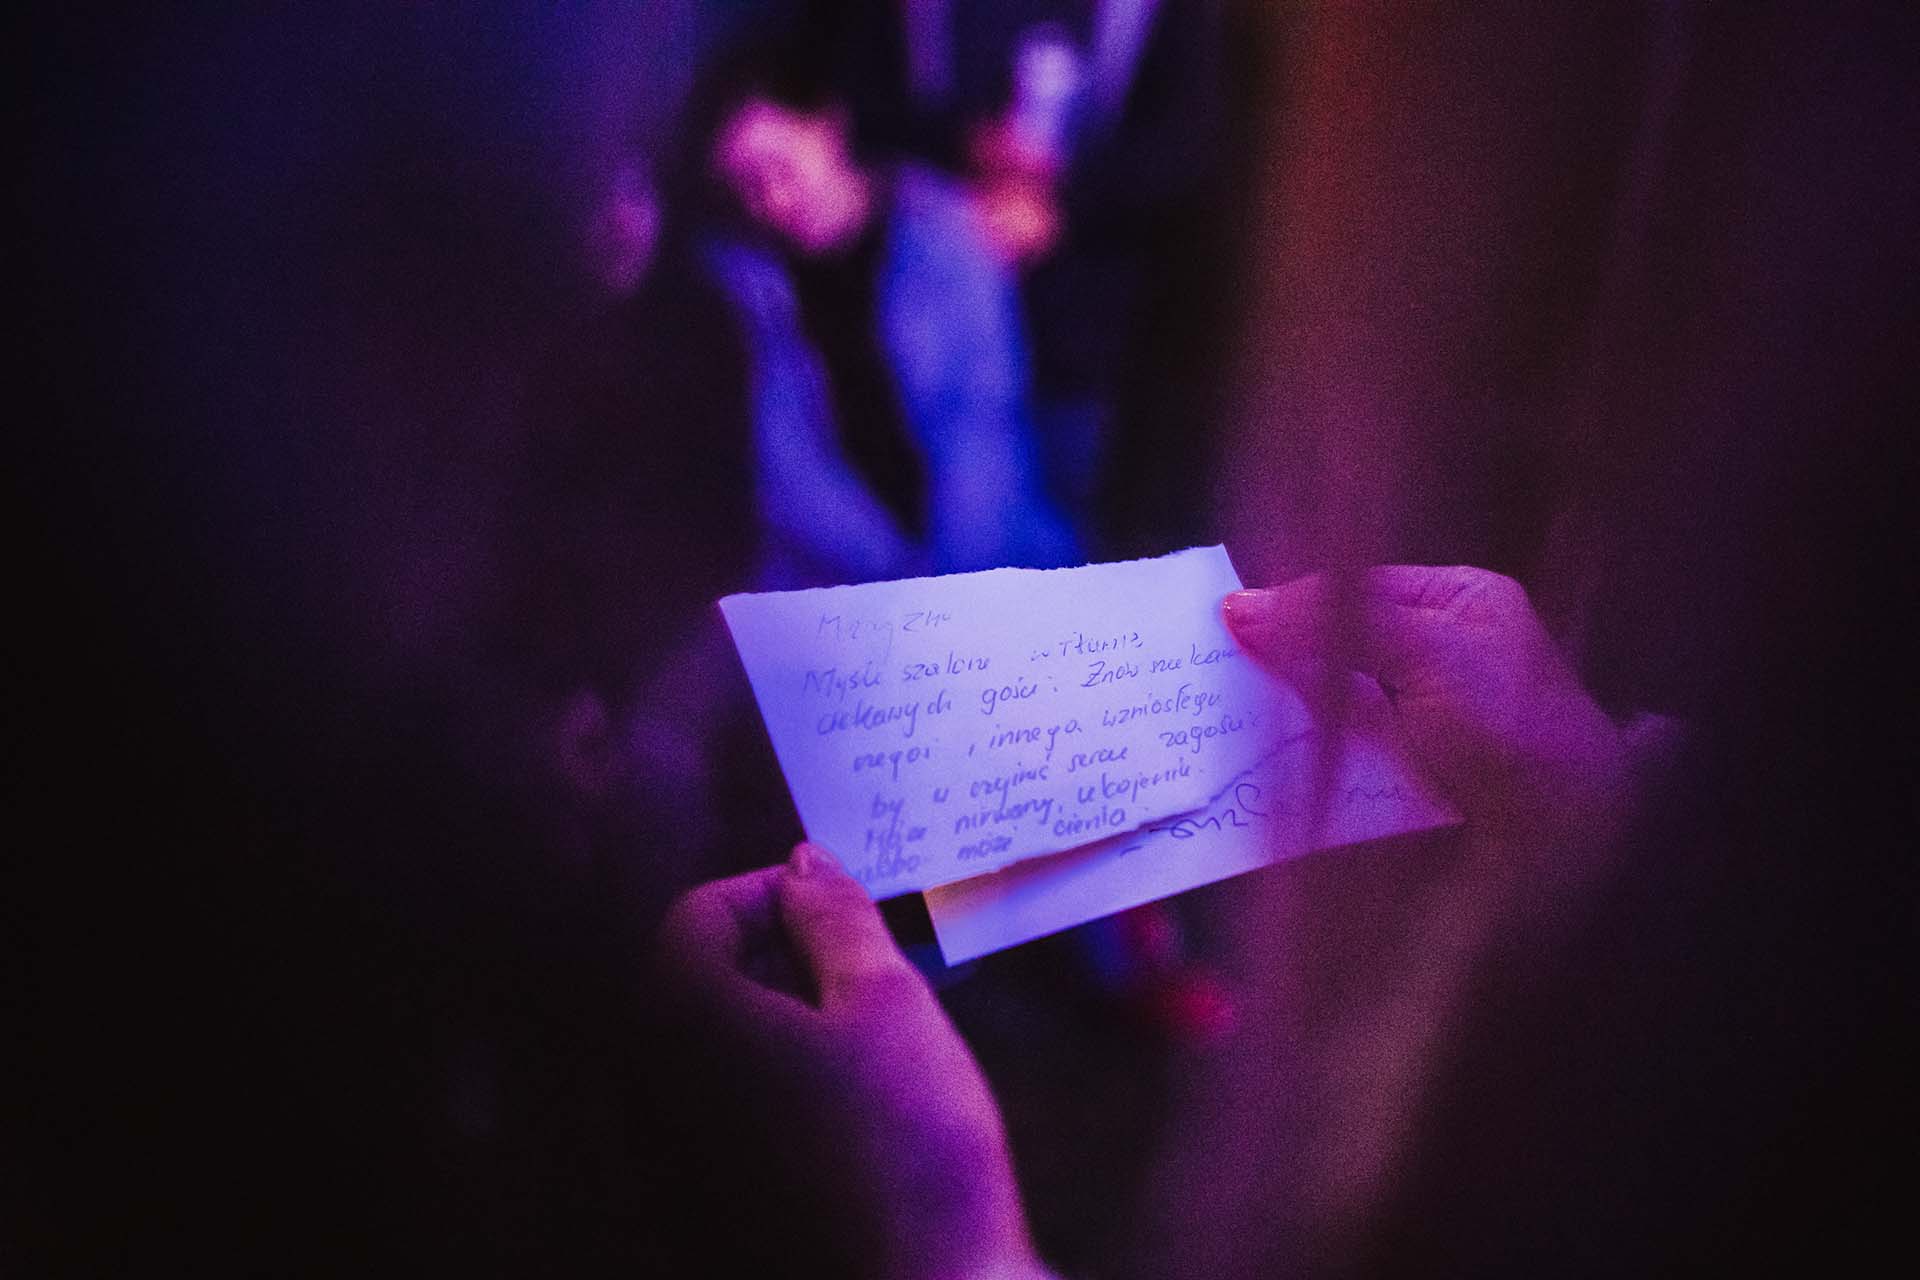 Myśli szalone w tłumie
ciekawych gości. Znów szukam
czegoś, innego, wzniosłego
by w czyimś sercu zagościć
nirwany, ukojenie.
może cienia